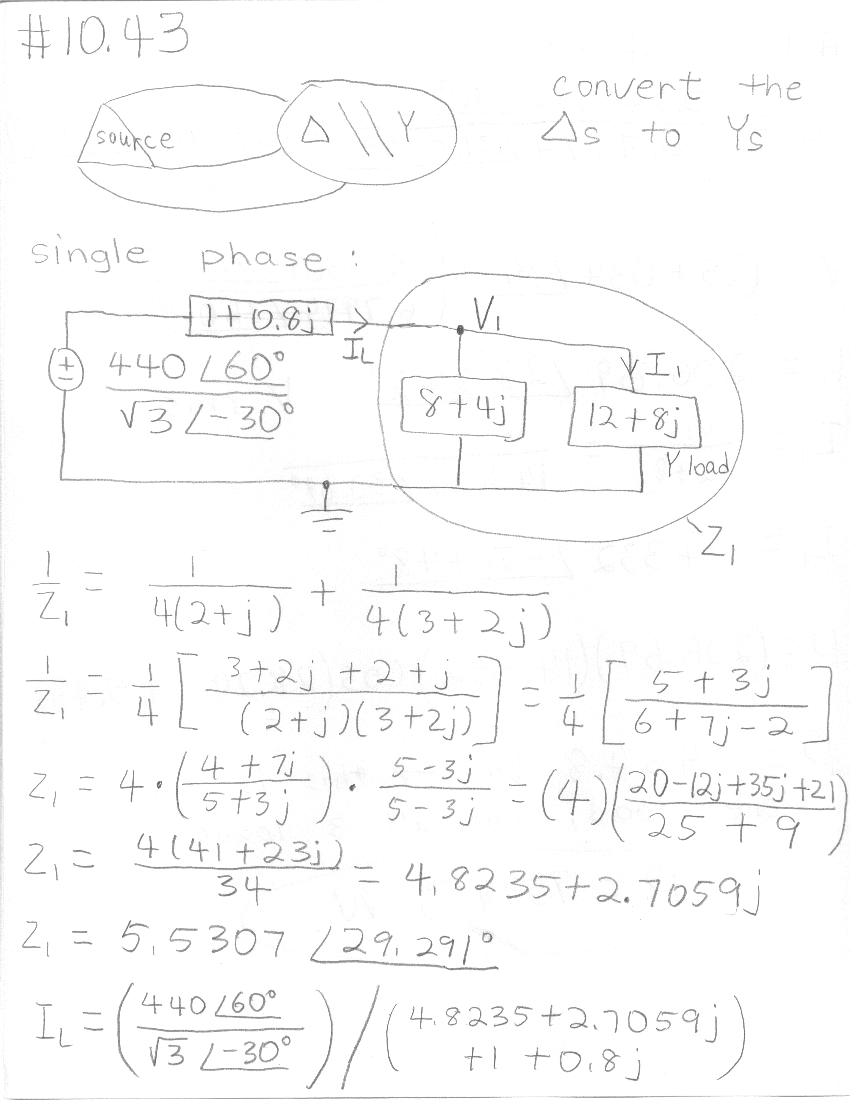 #10.43
source Δ \\ Y
convert the
Δs to Ys
single phase:
1+0.8j
I_L
V₁
I₁
440∠60° / √3∠-30°
8+4j
12+8j
Y load
Z₁
1/Z₁ = 1/(4(2+j)) + 1/(4(3+2j))
1/Z₁ = 1/4 [(3+2j+2+j)/((2+j)(3+2j))] = 1/4 [(5+3j)/(6+7j-2)]
Z₁ = 4·((4+7j)/(5+3j))·(5-3j)/(5-3j) = (4)((20-12j+35j+21)/(25+9))
Z₁ = 4(41+23j)/34 = 4.8235+2.7059j
Z₁ = 5.5307 ∠29.291°
I_L = (440∠60° / √3∠-30°) / (4.8235+2.7059j
+1 +0.8j)